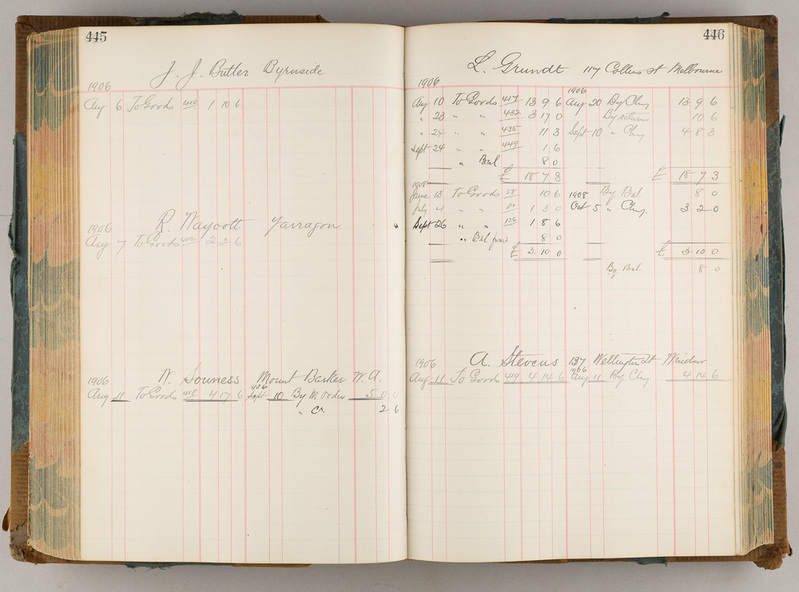 445
J. J. Butler Byrnside
1906
Aug 6 To Goods 1 10 6
1906 R. Waycott Yarragon
Aug 7 To Goods 2 2 6
1906 W. Souness Mount Barker W.A.
Aug 11 To Goods 4 17 6 1906 Sept 10 By M. Order 5 0 0
" Cr 2 6
446
L. Grundt 117 Collins St Melbourne
1906 1906
Aug 10 To Goods 417 13 9 6 Aug 20 By Chq 13 9 6
" 23 " " 432 3 17 0 By returns 10 6
" 24 " " 435 11 3 Sept 10 " Chq 4 8 3
Sept 24 " " 449 1 6
" Bal 8 0
£ 18 7 3 £ 18 7 3
1908
June 13 To Goods 58 10 6 1908 By Bal 8 0
July 4 " " 1 3 0 Oct 5 " Chq 3 2 0
Sept 26 " " 156 1 8 6
" Bal fwd 8 0
£ 3 10 0 £ 3 10 0
By Bal 8 0
1906 A. Stevens 137 Wellington St Windsor
Aug 11 To Goods 4 14 6 1906 Aug 11 By Chq 4 14 6